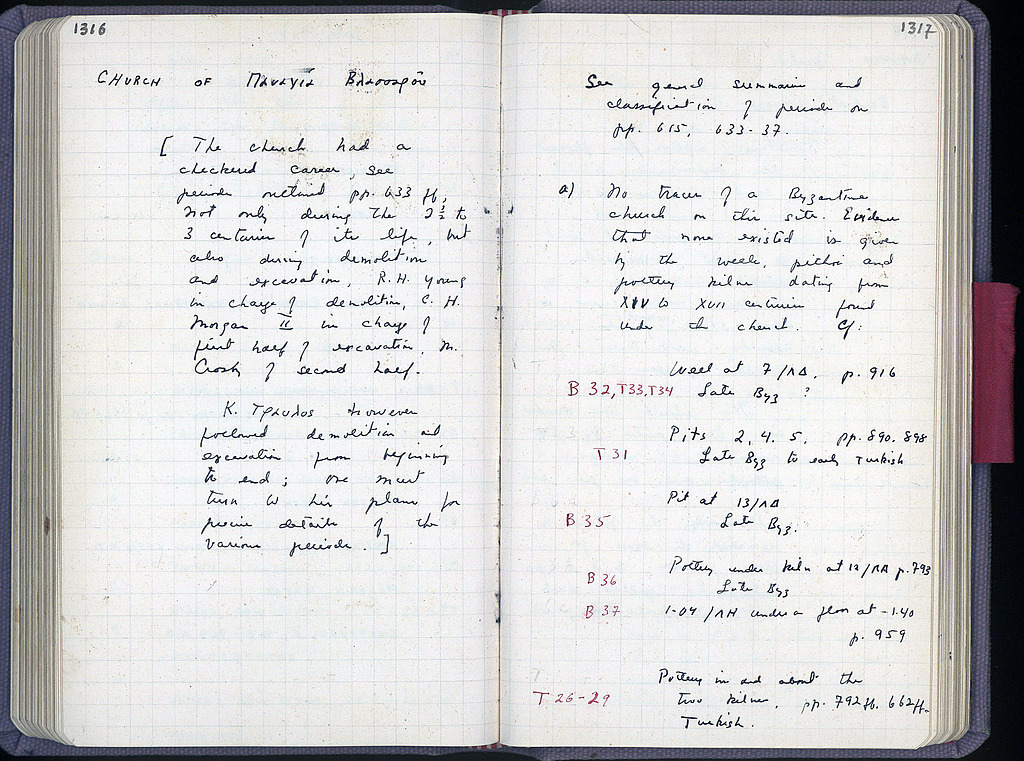 1316
CHURCH OF Παναγία Βλασσαρού
[ The church had a
checkered career, see
periods outlined pp. 633 ff,
not only during the 2½ to
3 centuries of its life, but
also during demolition
and excavation, R. H. Young
in charge of demolition, C. H.
Morgan II in charge of
first half of excavation, M.
Crosby of second half.
K. Τραυλος however
followed demolition and
excavation from beginning
to end; one must
turn to his plans for
precise details of the
various periods. ]
1317
See general summaries and
classification of periods on
pp. 615, 633-37.
a) No traces of a Byzantine
church on this site. Evidence
that none existed is given
by the wells, pithoi and
pottery kilns dating from
XIV to XVII centuries found
under the church. Cf:
Well at 7/ΛΔ, p. 916
B 32, T33, T34 Late Byz ?
Pits 2, 4, 5, pp. 890, 898
T 31 Late Byz to early Turkish
Pit at 13/ΛΔ
B 35 Late Byz.
Pottery under kiln at 12/ΛΑ p. 793
B 36 Late Byz
B 37 1-04/ΛΗ under a floor at -1.40
p. 959
Pottery in and about the
T 26-29 two kilns, pp. 792 ff. 662 ff.
Turkish.